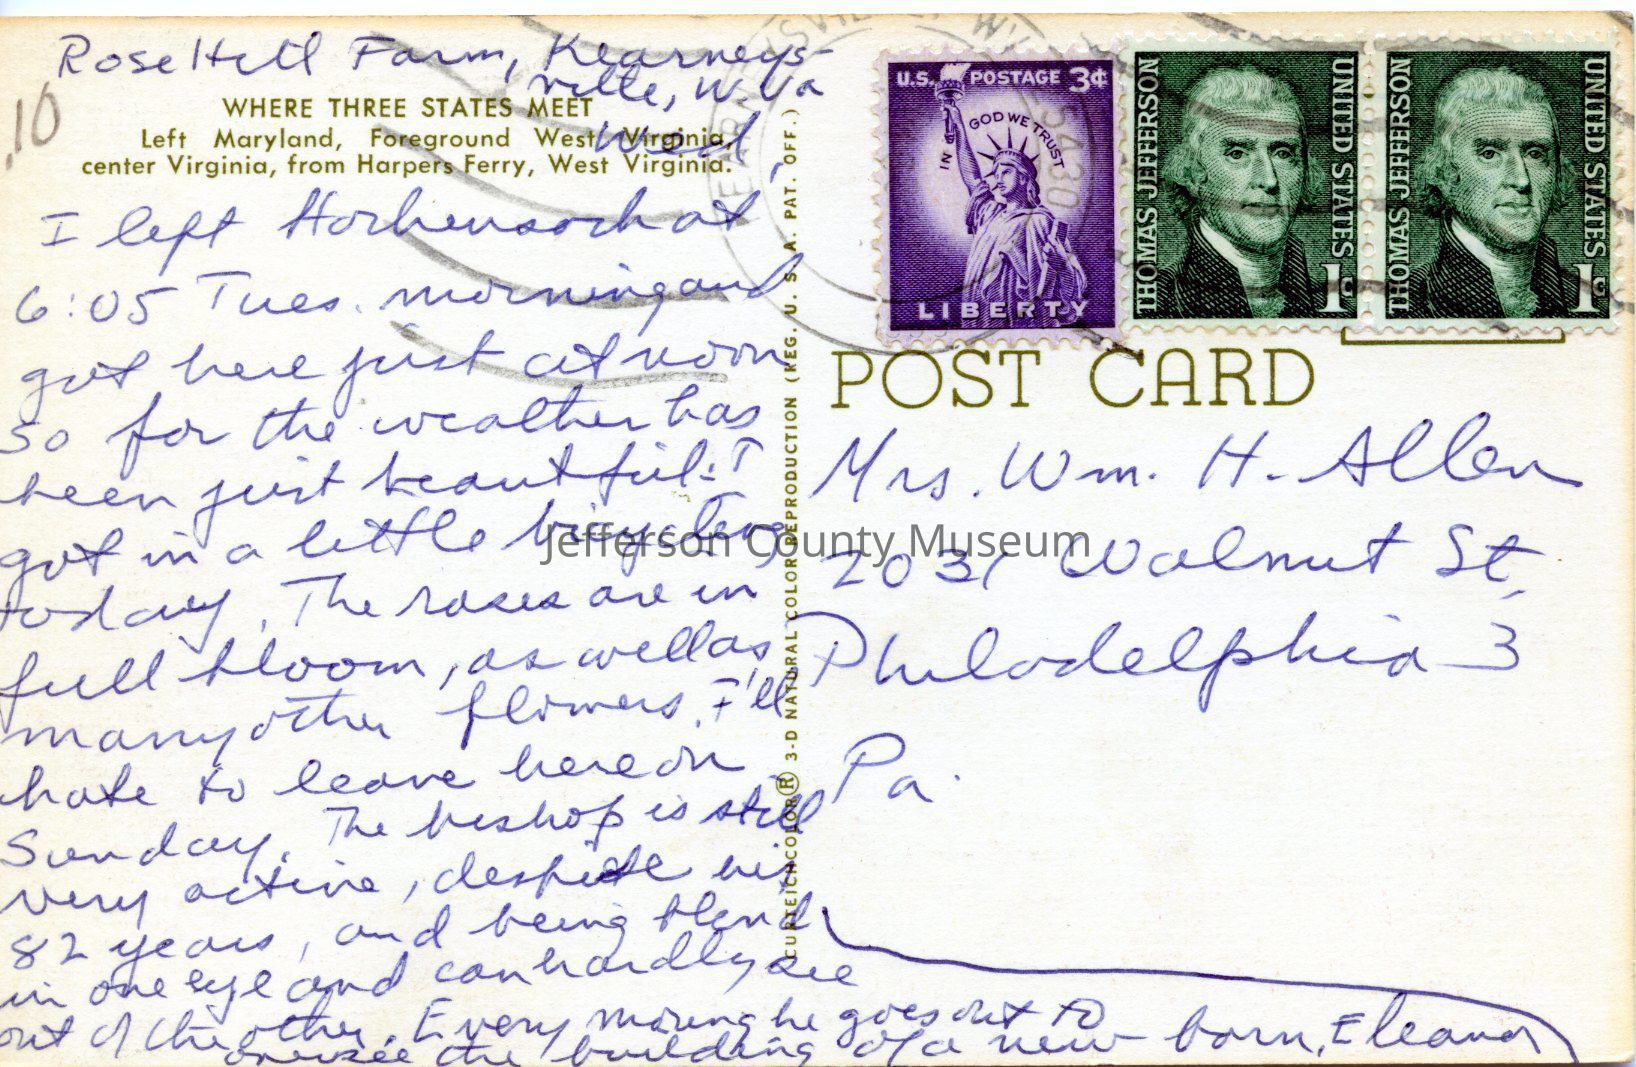 Rose Hill Farm, Kearneys-
ville, W. Va
Wed.
.10
WHERE THREE STATES MEET
Left Maryland, Foreground West Virginia,
center Virginia, from Harpers Ferry, West Virginia.
I left Hackensack at
6:05 Tues. morning and
got here just at noon
So far the weather has
been just beautiful. I
got in a little bicycling
today. The roses are in
full bloom, as well as
many other flowers. I'll
hate to leave here on
Sunday. The bishop is still
very active, despite his
82 years, and being blind
in one eye and can hardly see
out of the other. Every morning he goes out to
oversee the building of a new barn, Eleanor
CURTEICHCOLOR® 3-D NATURAL COLOR REPRODUCTION (REG. U. S. A. PAT. OFF.)
U.S. POSTAGE 3¢
IN GOD WE TRUST
LIBERTY
THOMAS JEFFERSON
UNITED STATES
1¢
THOMAS JEFFERSON
UNITED STATES
1¢
25430
POST CARD
Mrs. Wm. H. Allen
2031 Walnut St,
Philadelphia 3
Pa.
Jefferson County Museum